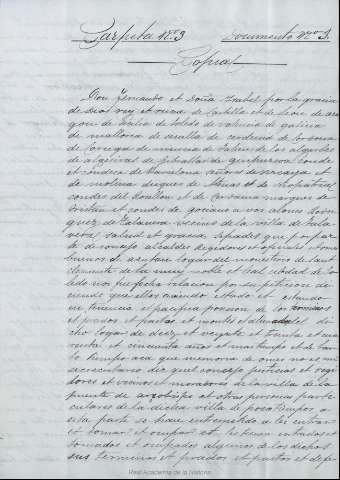 Carpeta nº 3 Documento nº 3.
Copia
Don Fernando et Doña Isabel por la gracia
de dios rey et reina de Castilla et de leon de ara
gon de de toledo de valencia de galicia
de mallorca de sevilla de cerdeña de Cordova
de Corcega de murcia de Jahen de los algarbes
de algecira de gibraltar de guipuzcoa conde
et condesa de barcelona señores de vizcaya et
de molina duques de Atenas et de Neopatria
condes del Rosellon et de Cerdania marqueses de
Oristan et condes de gociano a vos alonso
de vecino de la villa de tala
vera, salud et gracia sepades que por par
te de concejo alcaldes regidores et oficiales et ome
buenos de logar del monesterio de Sant
clemente de la muy noble et leal cibdad de to
ledo nos fue fecha relacion por su peticion di
ciendo que ellos estado et estando
en tenencia et pacifica posesion de los
et prados et pastos et montes del di
cho logar de diez et veynte et treynta et cua
renta et cincuenta años et mas tiempo et de tan
to tiempo aca que memoria de omes no es
en contrario diz quel concejo justicias et regi
dores et vecinos et moradores de la villa de la
puente de arzobispo et otras personas parti
culares de la dicha villa de poco tiempo a
esta parte se han entremetido a les entrar
et tomar et ocupar et les tienen entrados et
tomados et ocupados algunos de los dichos
sus terminos et prados et pastos et
Real Academia de la Historia